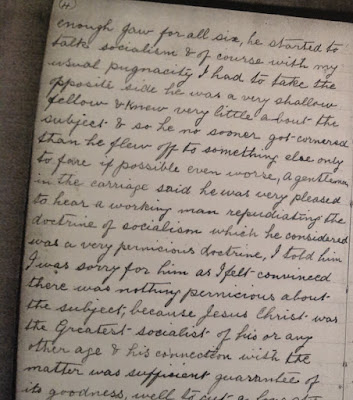 (4)
enough jaw for all six, he started to
talk socialism & of course with my
usual pugnacity I had to take the
opposite side he was a very shallow
fellow & knew very little about the
subject & so he no sooner got cornered
than he flew off to something else only
to fare if possible even worse, a gentleman
in the carriage said he was very pleased
to hear a working man repudiating the
doctrine of socialism which he considered
was a very pernicious doctrine, I told him
I was sorry for him as I felt convinced
there was nothing pernicious about
the subject, because Jesus Christ was
the Greatest socialist of his or any
other age & his connection with the
matter was sufficient guarantee of
its goodness, well to cut a long